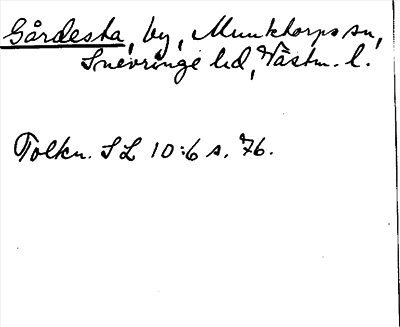 Gårdesta, by, Munktorps sn,
Snevringe hd, Västm. l.
Tolkn. SL 10:6 s. 76.